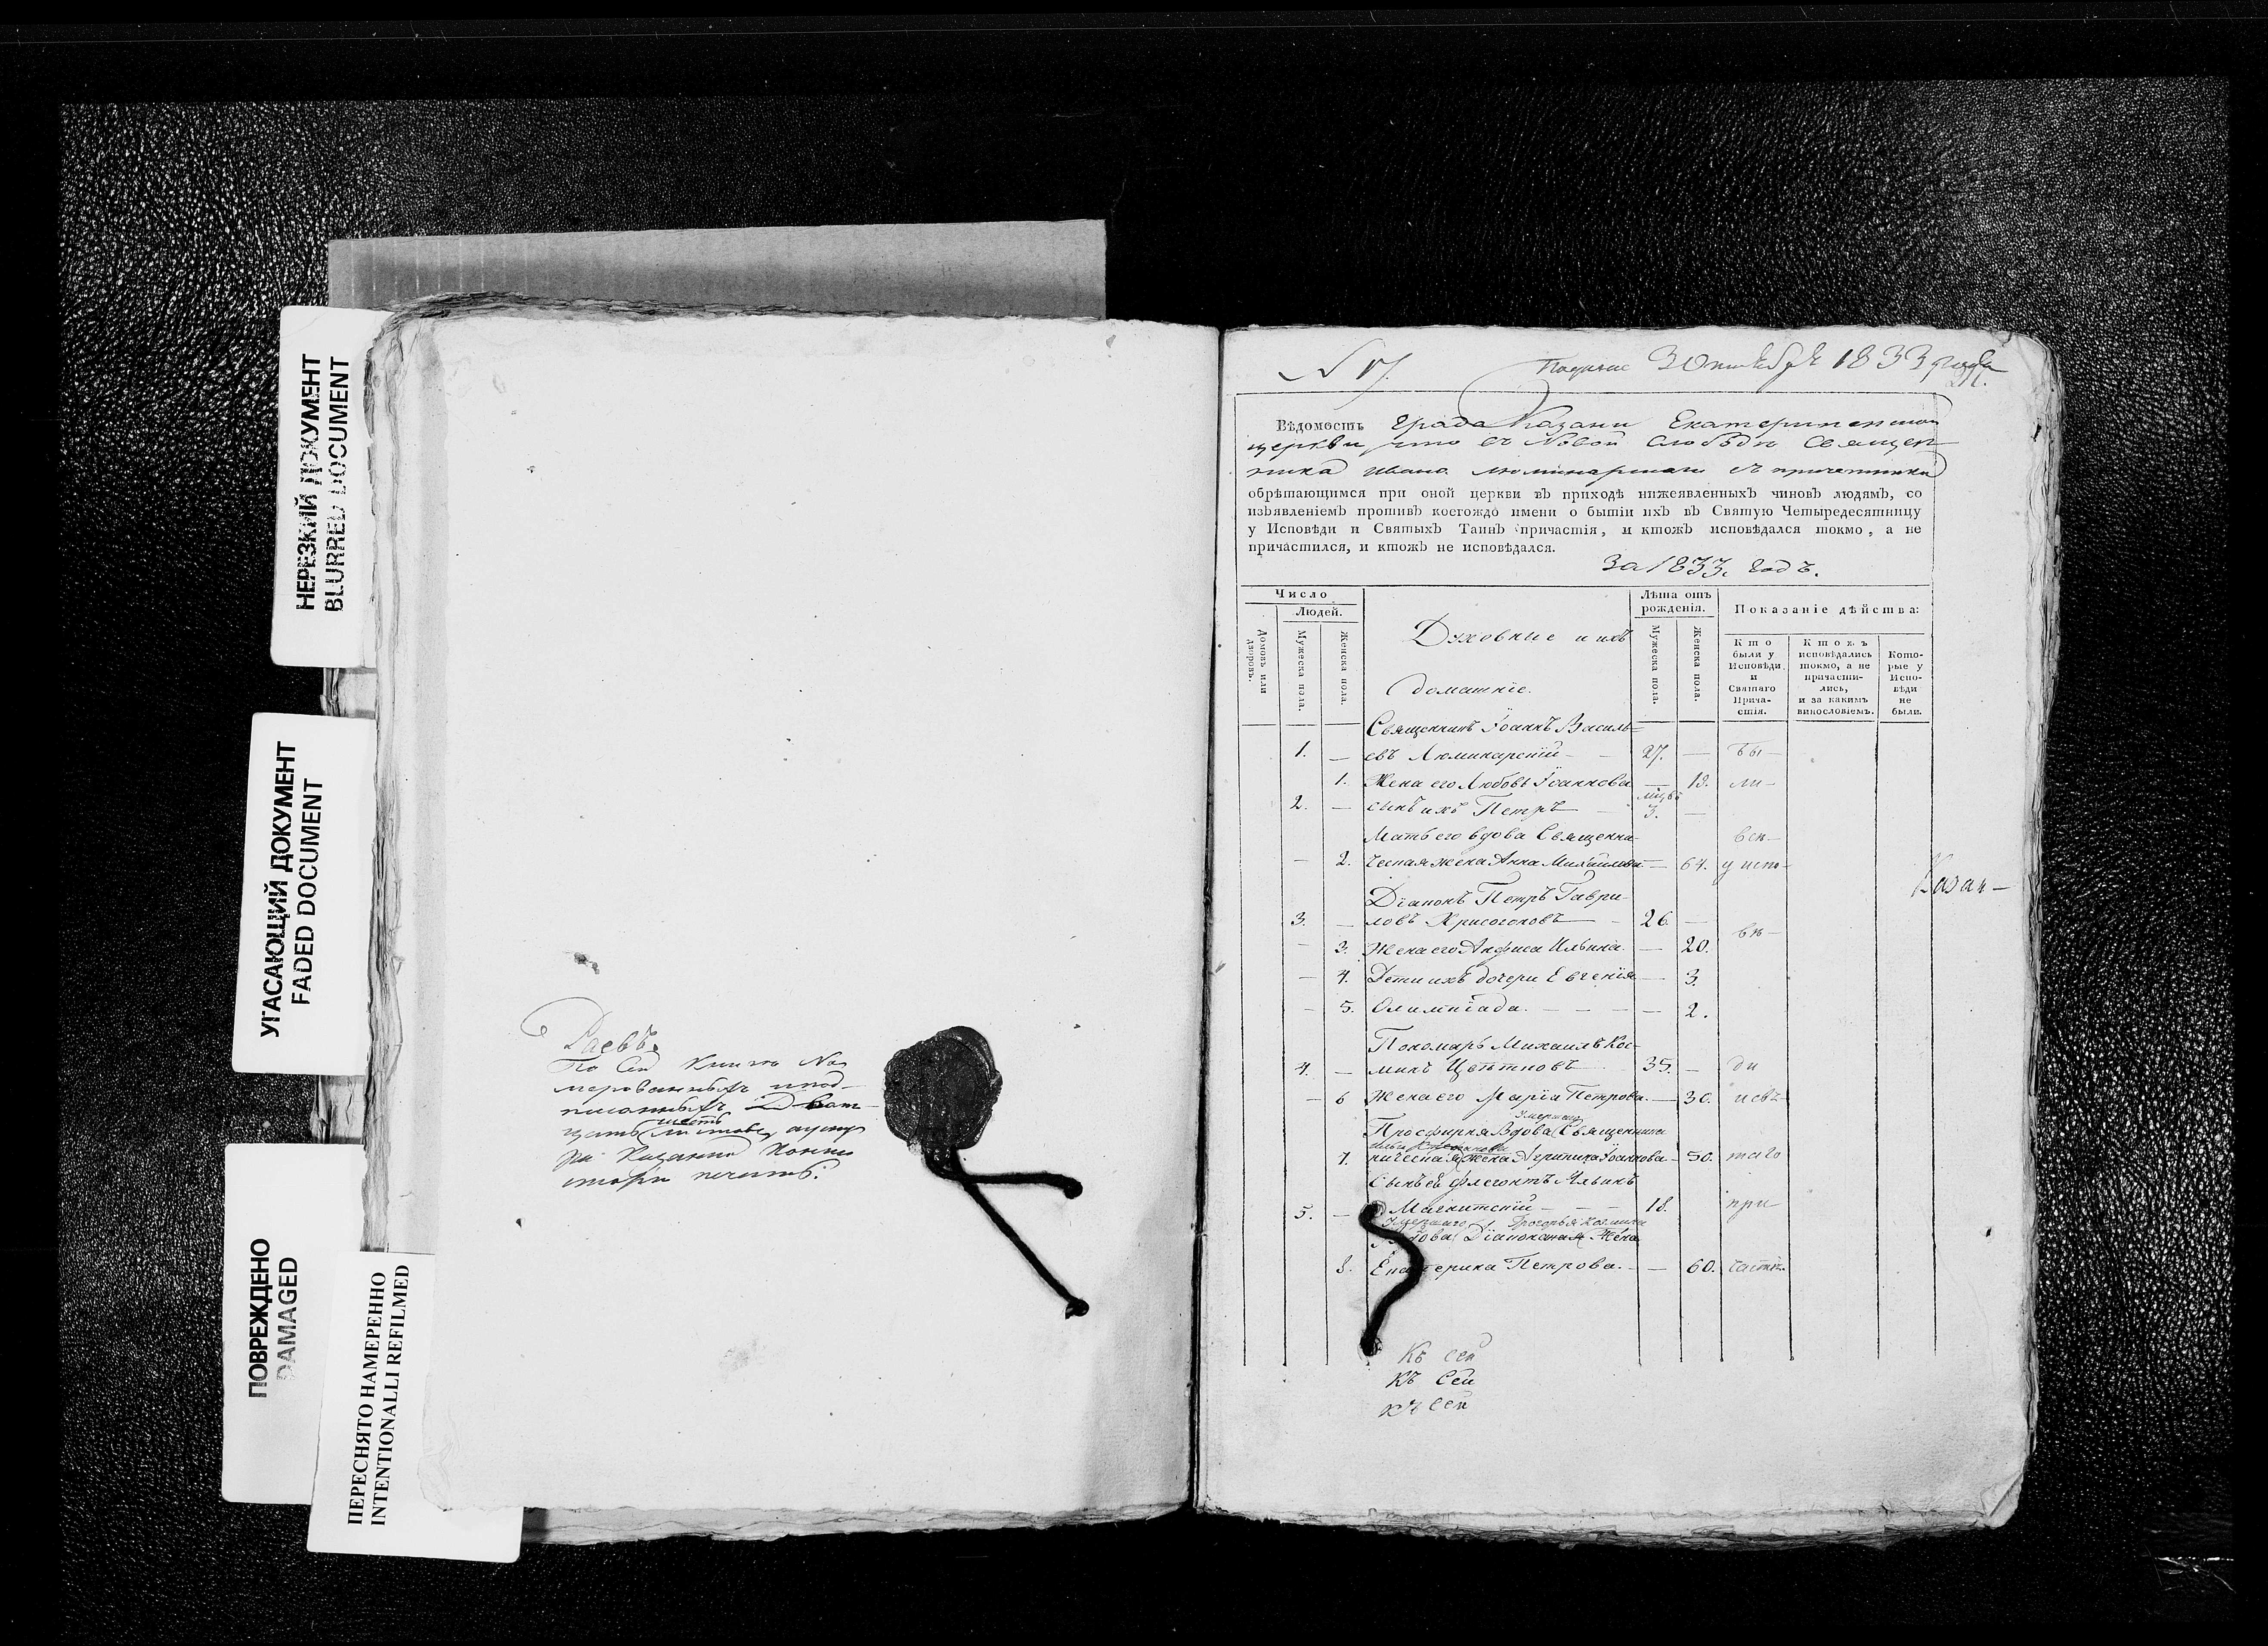 НЕРЕЗКИЙ ДОКУМЕНТ
BLURRED DOCUMENT
УГАСАЮЩИЙ ДОКУМЕНТ
FADED DOCUMENT
ПОВРЕЖДЕНО
DAMAGED
ПЕРЕСНЯТО НАМЕРЕННО
INTENTIONALLI REFILMED
Раевъ.
По сей книге Но
мерованныхъ и под-
писанныхъ Дват-
цать шесть листовъ
Казанс
печать.
N 17.
3 Октября 1833 года
Вѣдомость Града Казани Екатерининской
церкви что въ Новой слободѣ Священ-
ника Ивана Люминарскаго съ причетники
обрѣтающимся при оной церкви въ приходѣ нижеявленныхъ чиновъ людямъ, со
изъявленіемъ противъ коегождо имени о бытіи ихъ въ Святую Четыредесятницу
у Исповѣди и Святыхъ Таинъ причастія, и ктожъ исповѣдался токмо, а не
причастился, и ктожъ не исповѣдался.
За 1833. годъ.
Число
Людей.
Домовъ или дворовъ.
Мужеска пола.
Женска пола.
Духовные и ихъ
домашніе.
Лѣта отъ рожденія.
Мужеска пола.
Женска пола.
Показаніе дѣйства:
Кто были у Исповѣди и Святаго Причастія.
Ктожъ исповѣдались токмо, а не причастились, и за какимъ винословіемъ.
Которые у Исповѣди не были.
Священникъ Іоаннъ Василь-
1. — евъ Люминарскій — 27. — бы-
1. Жена его Любовь Іоаннова — 18. ли-
2. — сынъ ихъ Петръ — 3. —
Мать его вдова Священни- всѣ-
— 2. ческая жена Анна Михайлова — 64. у исто-
Казан-
Діаконъ Петръ Гаври-
3. — ловъ Хрисогоновъ — 26 — вѣ-
— 3. Жена его Анфиса Ильина — 20.
— 4. Дети ихъ дочери Евгенія — 3.
— 5. Олимпіада. — — 2.
Пономарь Михаилъ Кос-
4. — минъ Цвѣтковъ 35. — ди
— 6 Жена его Марія Петрова. — 30. и свѣ-
Просфирня Вдова Священника
7. ническая жена Агрипина Іоаннова — 50. таго
Сынъ ея Флегонтъ Ильинъ
5. — Магнитскій — 18. при
умершаго Григорья Козмина
Вдова Діаконская Жена
8. Екатерина Петрова. — 60. частія.
Къ сей
Къ сей
Къ сей